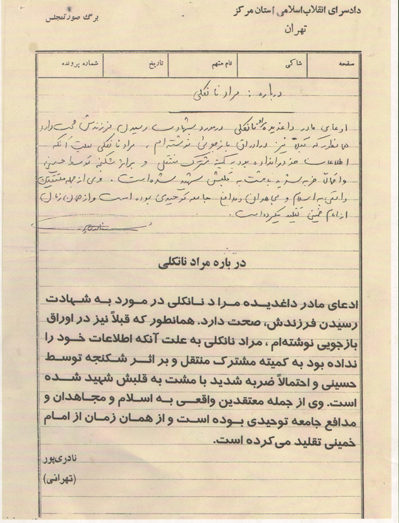 دادسرای انقلاب اسلامی استان مرکز
تهران
برگ صورتمجلس
صفحه
شاکی
نام متهم
تاریخ
شماره پرونده
درباره : مراد نانکلی
ادعای مادر داغدیده مراد نانکلی در مورد بشهادت رسیدن فرزندش صحت دارد
همانطور که قبلاً نیز در اوراق بازجوئی نوشته‌ام، مراد نانکلی بعلت آنکه
اطلاعات خود را نداده بود به کمیته مشترک منتقل و بر اثر شکنجه توسط حسینی
و احتمالاً ضربه شدید با مشت به قلبش شهید شده است. وی از جمله معتقدین
واقعی به اسلام و مجاهدان و مدافع جامعه توحیدی بوده است و از همان زمان
از امام خمینی تقلید میکرده است.
در باره مراد نانکلی
ادعای مادر داغدیده مراد نانکلی در مورد به شهادت
رسیدن فرزندش، صحت دارد. همانطور که قبلاً نیز در اوراق
بازجویی نوشته‌ام ، مراد نانکلی به علت آنکه اطلاعات خود را
نداده بود به کمیته مشترک منتقل و بر اثر شکنجه توسط
حسینی و احتمالاً ضربه شدید با مشت به قلبش شهید شده
است. وی از جمله معتقدین واقعی به اسلام و مجاهدان و
مدافع جامعه توحیدی بوده است و از همان زمان از امام
خمینی تقلید می‌کرده است.
نادری‌پور
(تهرانی)